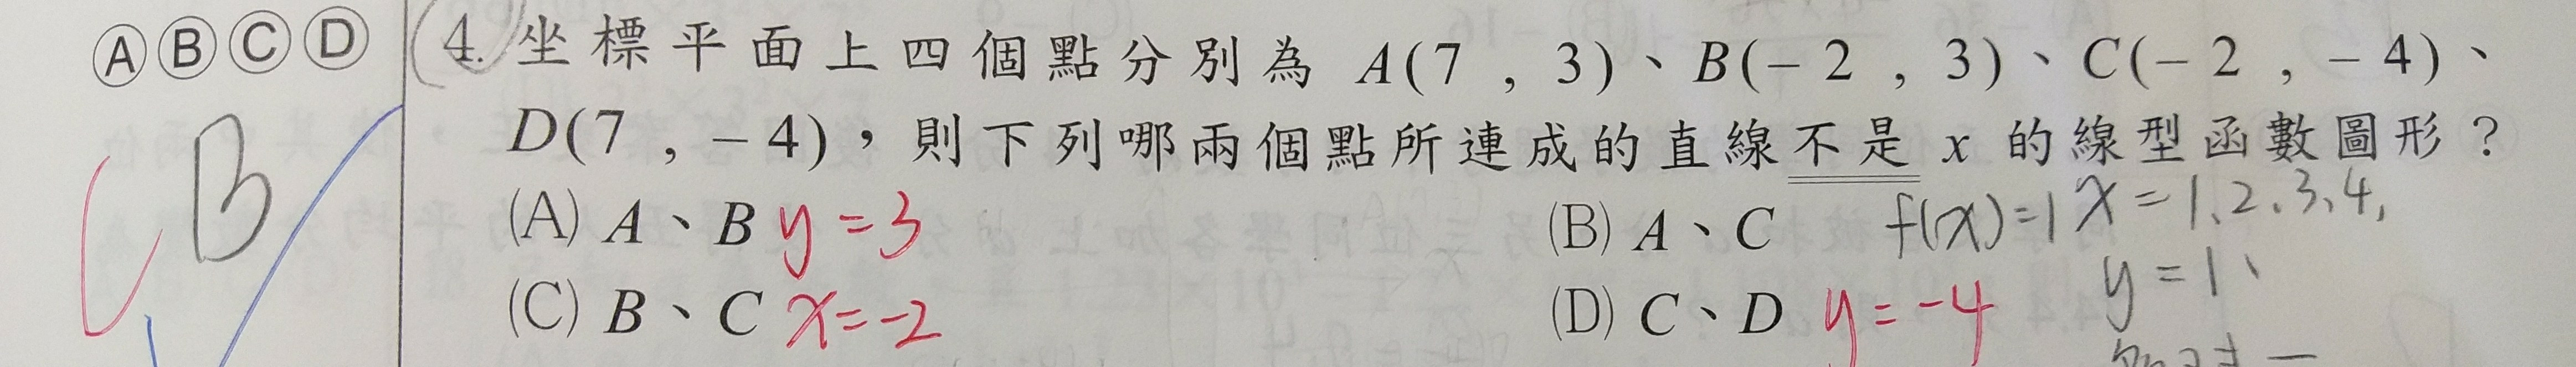 Ⓐ Ⓑ Ⓒ Ⓓ
4. 坐標平面上四個點分別為 A(7 , 3)、B(-2 , 3)、C(-2 , -4)、
D(7 , -4)，則下列哪兩個點所連成的直線不是 x 的線型函數圖形？
B
C
(A) A、B y=3
(B) A、C f(x)=1 x=1、2、3、4、
y=1、
(C) B、C x=-2
(D) C、D y=-4